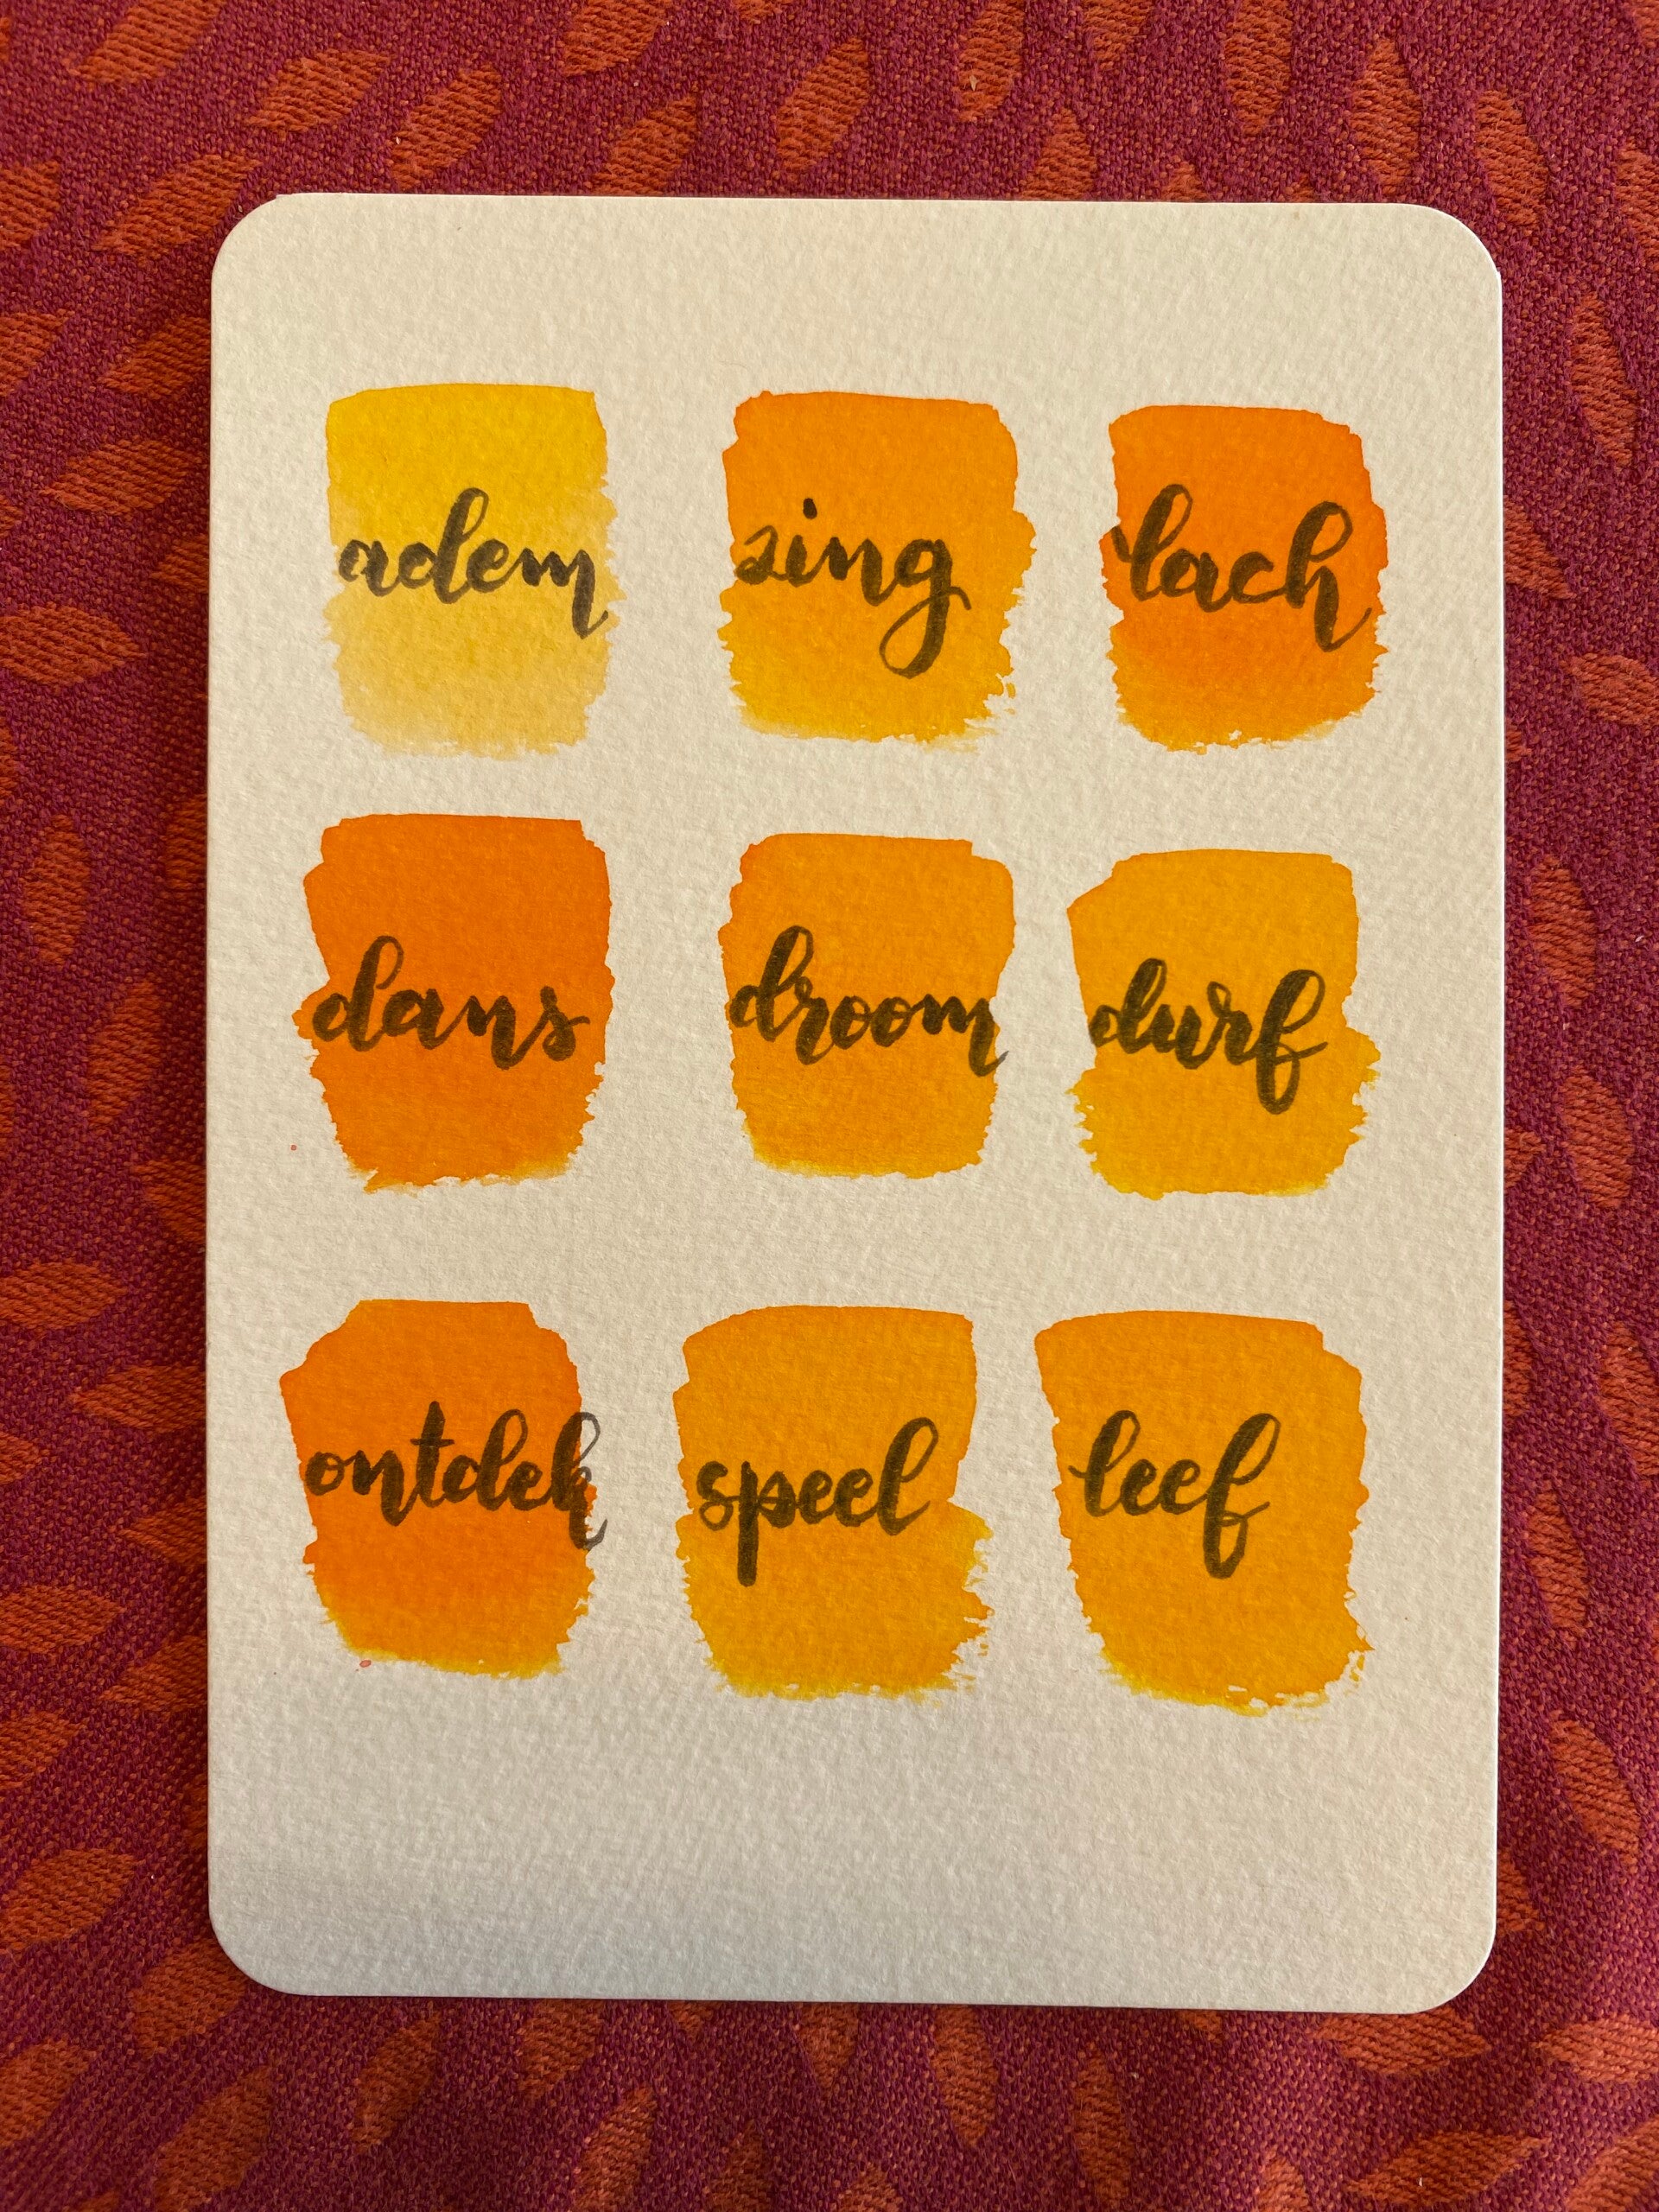 adem zing lach
dans droom durf
ontdek speel leef